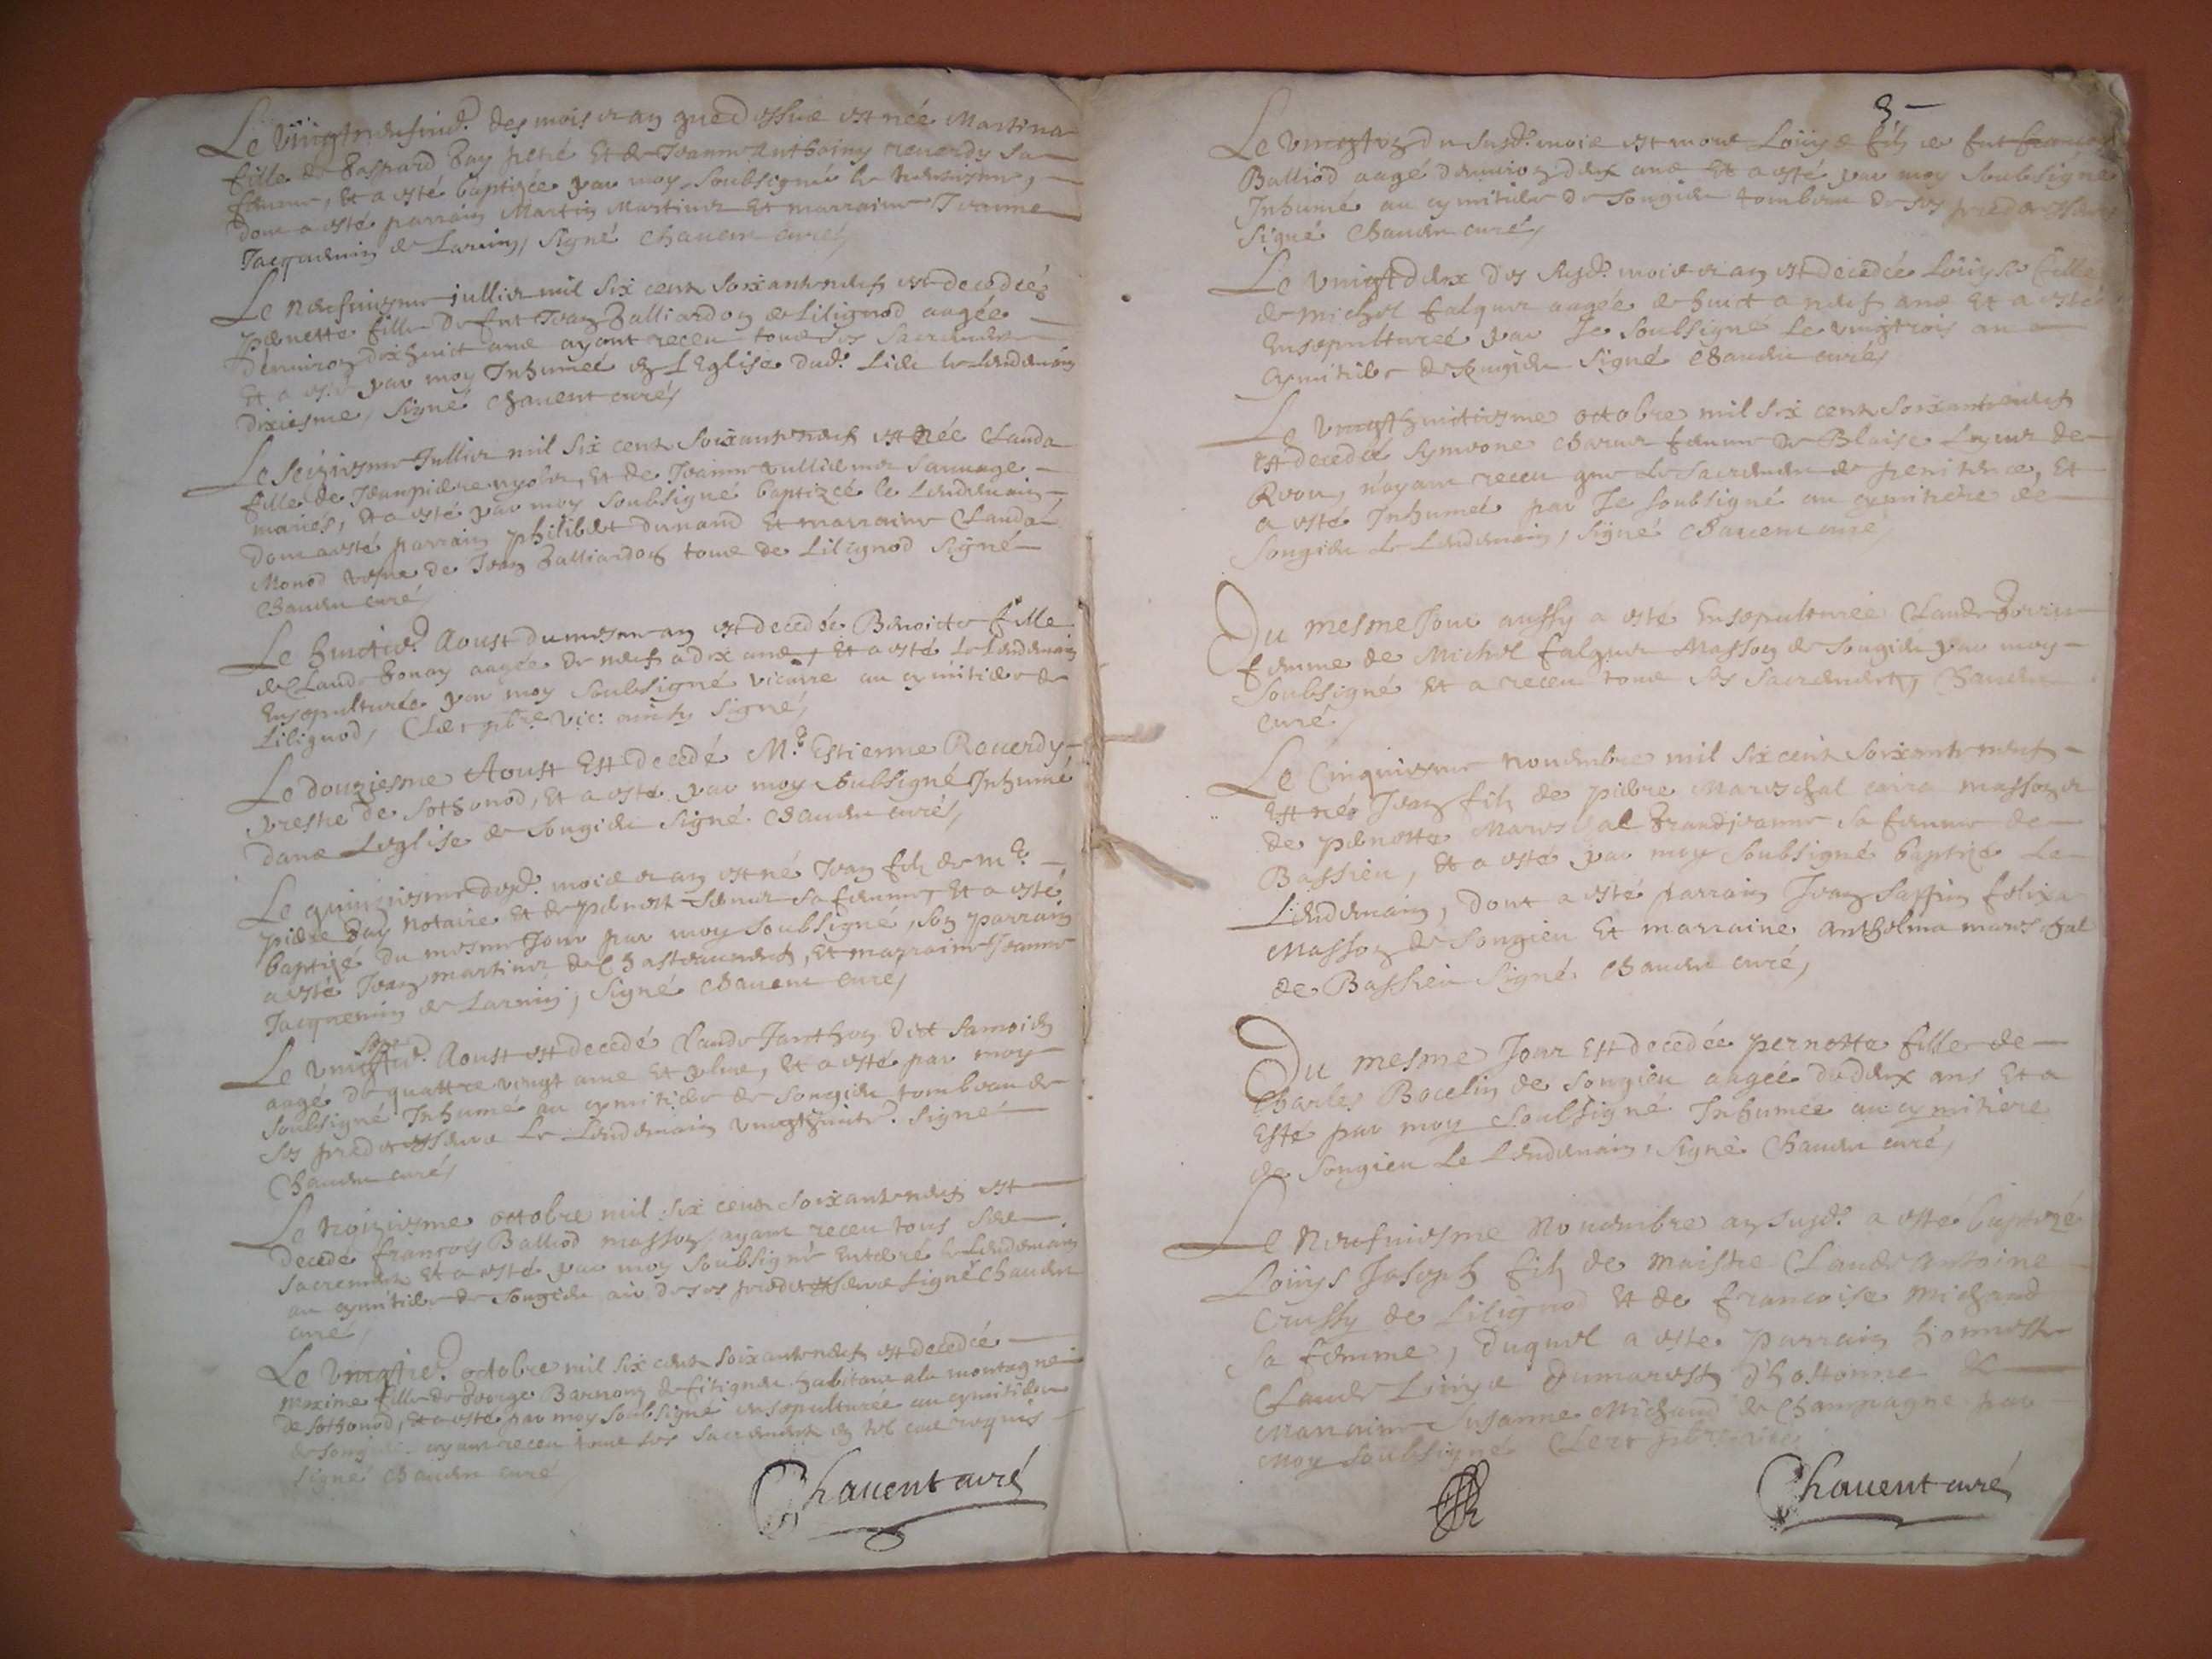 Le vingtneufviè. des mois et an que dessus est née Martina
fille de Gaspard Gay petré Et de Jeanne Anthoiny reverdy sa
femme, Et a esté baptizée par moy soubsigné le
dont a esté parrain Martin Martinet Et marraine Jeanne
Jacquemin de Larnin, signé Chavent curé,
Le neufviesme jullier mil six cent soixantneuf est decedéé
pernette fille de fut Jean Balliardon de Lilignod aagée
d'environ dixhuict ans ayant receu tous ses sacrements
Et a esté par moy Inhumeé en l'Eglise dud. Lieu le lendemain
dixiesme, signé Chavent curé,
Le seiziesme Jullier mil six cent soixantneuf est née Clauda
fille de Jeanpierre nyolet, Et de Jeanne vulliemer sauvage
mariés, Et a esté par moy soubsigné baptizéé le lendemain
dont a esté parrain philibert dunand Et marraine Clauda
Monod vefve de Jean Balliardon tous de Lilignod signé
Chavent curé,
Le huictie. Aoust du mesme an est decedéé Benoicte fille
de Claude bonay aagée de neuf a dix ans, Et a esté le lendemain
Ensepulturée par moy soubsigné vicaire au cymitiere de
Lilignod, Clet pbre vic: ainsy signé,
Le douziesme Aoust Est decedé Mre Estienne Reverdy
prestre de sothonod, Et a esté par moy soubsigné Inhumé
dans L'eglise de songieu signé Chavent curé,
Le quinziesme desd. mois et an est né Jean fils de me
pierre Gay notaire Et de pernett femme sa femme, Et a esté
baptizé du mesme Jour par moy soubsigné, son parrain
a esté Jean martinet de Chasteauneuf, Et marraine Jeanne
Jacquemin de Larnin, signé Chavent curé,
Le vingtsepttie. Aoust est decedé Claude Janthon dict samoien
aagé de quattre vingt ans Et plus, Et a esté par moy
soubsigné Inhumé au cymitiere de songieu tombeau de
ses predecesseurs Le Lendemain vingthuicte. signé
Chavent curé,
Le troiziesme octobre mil six cent soixantneuf est
decedé françois Balliod masson, ayant receu tous ses
sacrements Et a esté par moy soubsigné enterré le lendemain
au cymitiere de songieu de ses predecesseurs signé Chavent
curé,
Le vingtie. octobre mil six cent soixantneuf est decedéé
maxime fille de George Barnoux de fitignieu habitant a la montagne
de sothonod, Et a esté par moy soubsigné ensepulturéé au cymitiere
de songieu ayant receu tous ses sacrements en tel cas requis
signé Chavent curé
Chavent curé
3
Le vingtun du susd. mois est mort Louys fils de fut françois
Balliod aagé d'environ deux ans Et a esté par moy soubsigné
Inhumé au cymitiere de songieu tombeau de ses predecesseurs
signé Chavent curé,
Le vingtdeux des susd. mois et an est decedéé Louyse fille
de michel falquet aagée de huict a neuf ans Et a esté
Ensepulturéé par Je soubsigné Le vingtrois au
cymitiere de songieu signé Chavent curé,
Le vingthuictiesme octobre mil six cent soixantneuf
est decedéé symeone charvet femme de Blaise Leyvet de
Roou, n'ayant receu que Le sacrement de penitence, Et
a esté Inhumeé par Je soubsigné au cymitiere de
songieu Le Lendemain, signé Chavent curé,
Du mesme Jour aussy a esté Ensepulturéé Claude
femme de Michel falquet Masson de songieu par moy
soubsigné Et a receu tous ses sacrements, Chavent
curé,
Le Cinquiesme novembre mil six cent soixantneuf
Est né Jean fils de pierre mareschal masson et
de pernette mareschal Grandjeanne sa femme de
Bassieu, Et a esté par moy soubsigné baptizé Le
Lendemain, dont a esté parrain Jean sappin
Masson de songieu Et marraine Antholma mareschal
de Bassieu signé Chavent curé,
Du mesme Jour Est decedéé pernette fille de
Charles Bocelin de songieu aagéé de deux ans Et a
Esté par moy soubsigné Inhumée au cymitiere
de songieu Le Lendemain, signé Chavent curé,
Le neufviesme novembre an susd. a esté baptizé
Louys Joseph fils de maistre Claude Antoine
Crussy de Lilignod Et de françoise michaud
sa femme, duquel a esté parrain honneste
Claude Louys dumarest d'hostonne Et
marraine susanne michaud de Champagne par
moy soubsigné Clert pbre vic.
Chavent curé